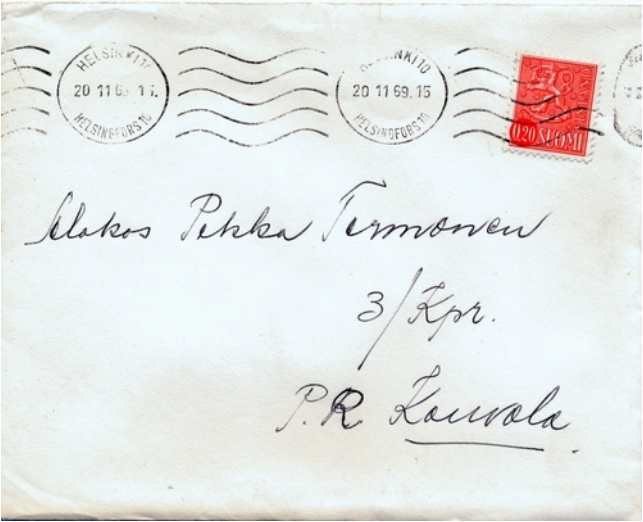 HELSINKI 10
20 11 69. 15
HELSINGFORS 10
HELSINKI 10
20 11 69. 15
HELSINGFORS 10
FINLAND
0,20 SUOMI
Alokas Pekka Termonen
3/Kpr.
P.R. Kouvola